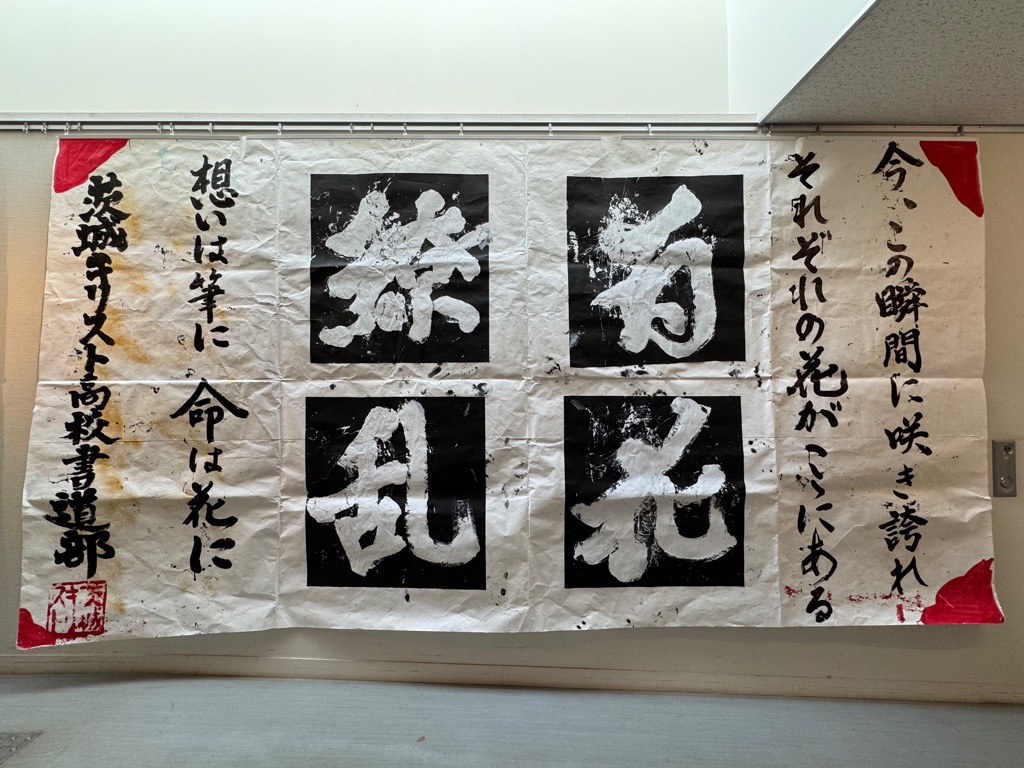 今、この瞬間に咲き誇れ
それぞれの花がここにある
百花
繚乱
想いは筆に 命は花に
茨城キリスト高校書道部